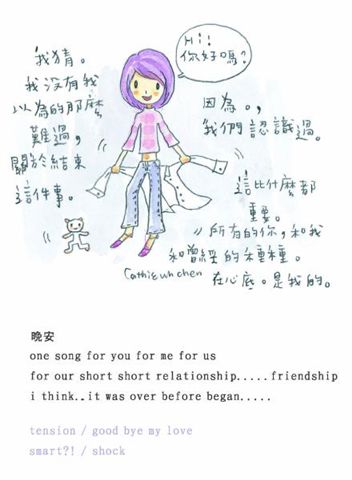 Hi!
你好嗎?
我猜。
我沒有我
以為的那麼
難過,
關於結束
這件事。
因為。,
我們認識過。
這比什麼都
重要。
所有的你,和我
和曾經的種種。
在心底。是我的。
晚安
one song for you for me for us
for our short short relationship.....friendship
i think..it was over before began.....
tension / good bye my love
smart?! / shock